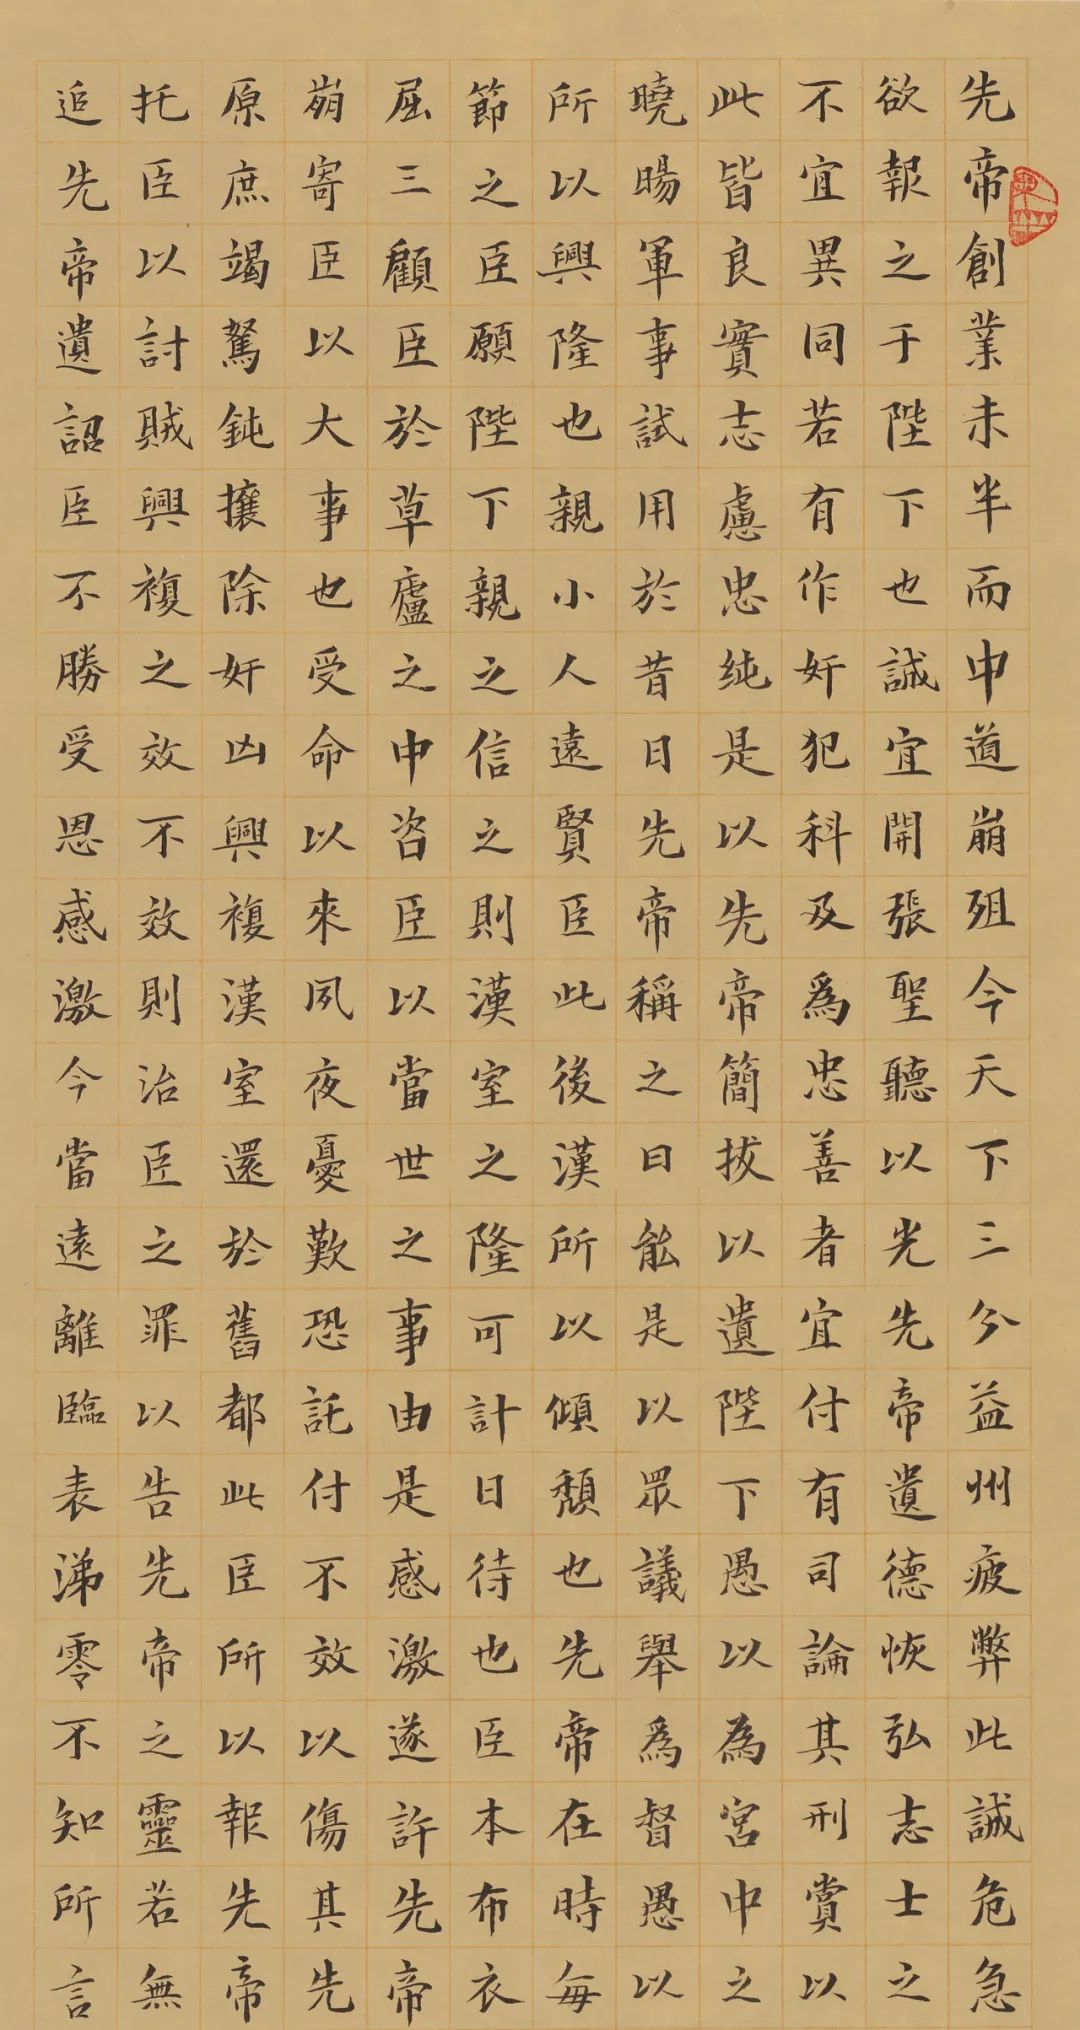 先帝創業未半而中道崩殂今天下三分益州疲弊此誠危急
欲報之于陛下也誠宜開張聖聽以光先帝遺德恢弘志士之
不宜異同若有作奸犯科及爲忠善者宜付有司論其刑賞以
此皆良實志慮忠纯是以先帝簡拔以遺陛下愚以為宮中之
曉暘軍事試用於昔日先帝稱之曰能是以眾議舉爲督愚以
所以興隆也親小人遠賢臣此後漢所以傾頹也先帝在時每
節之臣願陛下親之信之則漢室之隆可計日待也臣本布衣
屈三顧臣於草廬之中咨臣以當世之事由是感激遂許先帝
崩寄臣以大事也受命以來夙夜憂歎恐託付不效以傷其先
原庶竭駑鈍攘除奸凶興複漢室還於舊都此臣所以報先帝
托臣以討賊興複之效不效則治臣之罪以告先帝之靈若無
追先帝遺詔臣不勝受恩感激今當遠離臨表涕零不知所言